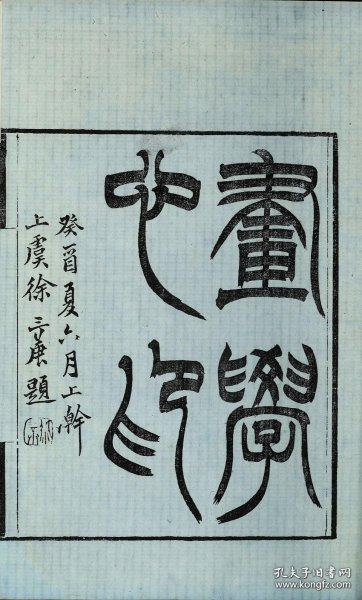 畫學
心印
癸酉夏六月上澣
上虞徐三庚題
孔夫子旧书网
www.kongfz.com